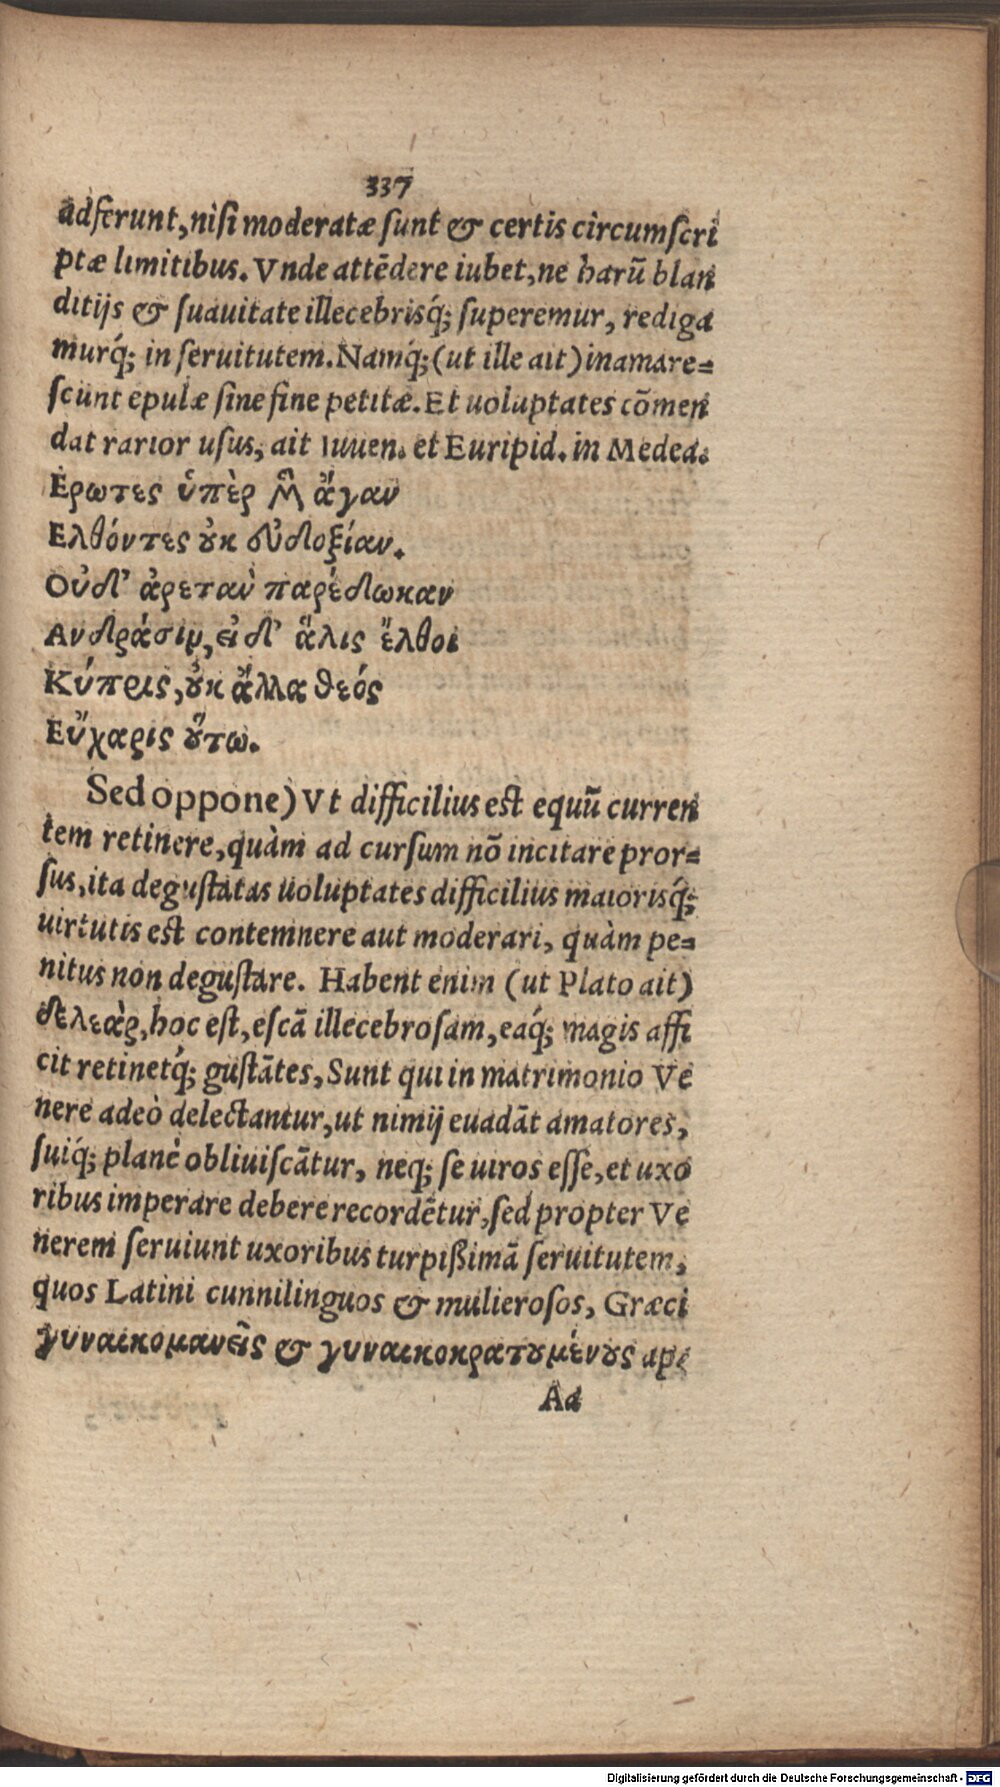 337
adferunt, nisi moderatæ sunt & certis circumscri
ptæ limitibus. Vnde attēdere iubet, ne harū blan
ditijs & suauitate illecebrisq́; superemur, rediga
murq́; in seruitutem. Namq́; (ut ille ait) inamare=
scunt epulæ sine fine petitæ. Et uoluptates cōmen
dat rarior usus, ait Iuuen. et Euripid. in Medea.
Ερωτες ὑπὲρ μὲν ἄγαν
Ελθόντες ȣκ εὐδοξίαν.
Οὐδ' ἀρετὰν παρέδωκαν
Ανδράσιν, εἰ δ' ἅλις ἔλθοι
Κύπρις, ȣ̓κ ἄλλα θεός
Εὔχαρις ȣ̔́τω.
Sed oppone) Vt difficilius est equū curren
tem retinere, quàm ad cursum nō incitare pror=
sus, ita degustatas uoluptates difficilius maiorisq́;
uirtutis est contemnere aut moderari, quàm pe=
nitus non degustare. Habent enim (ut Plato ait)
δελεὰρ, hoc est, escā illecebrosam, eaq́; magis affi
cit retinetq́; gustātes, Sunt qui in matrimonio Ve
nere adeò delectantur, ut nimij euadāt amatores,
suiq́; planè obliuiscātur, neq; se uiros esse, et uxo
ribus imperare debere recordētur, sed propter Ve
nerem seruiunt uxoribus turpißimā seruitutem,
quos Latini cunnilinguos & mulierosos, Græci
γυναικομανεῖς & γυναικοκρατȣμένȣς ape
Ad
Digitalisierung gefördert durch die Deutsche Forschungsgemeinschaft - DFG